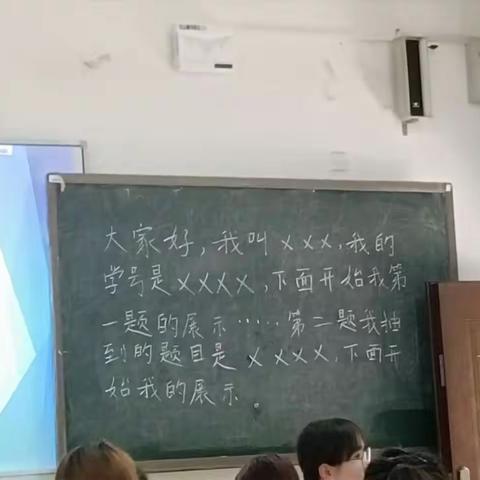 大家好，我叫×××，我的
学号是××××，下面开始我第
一题的展示……第二题我抽
到的题目是××××，下面开
始我的展示。